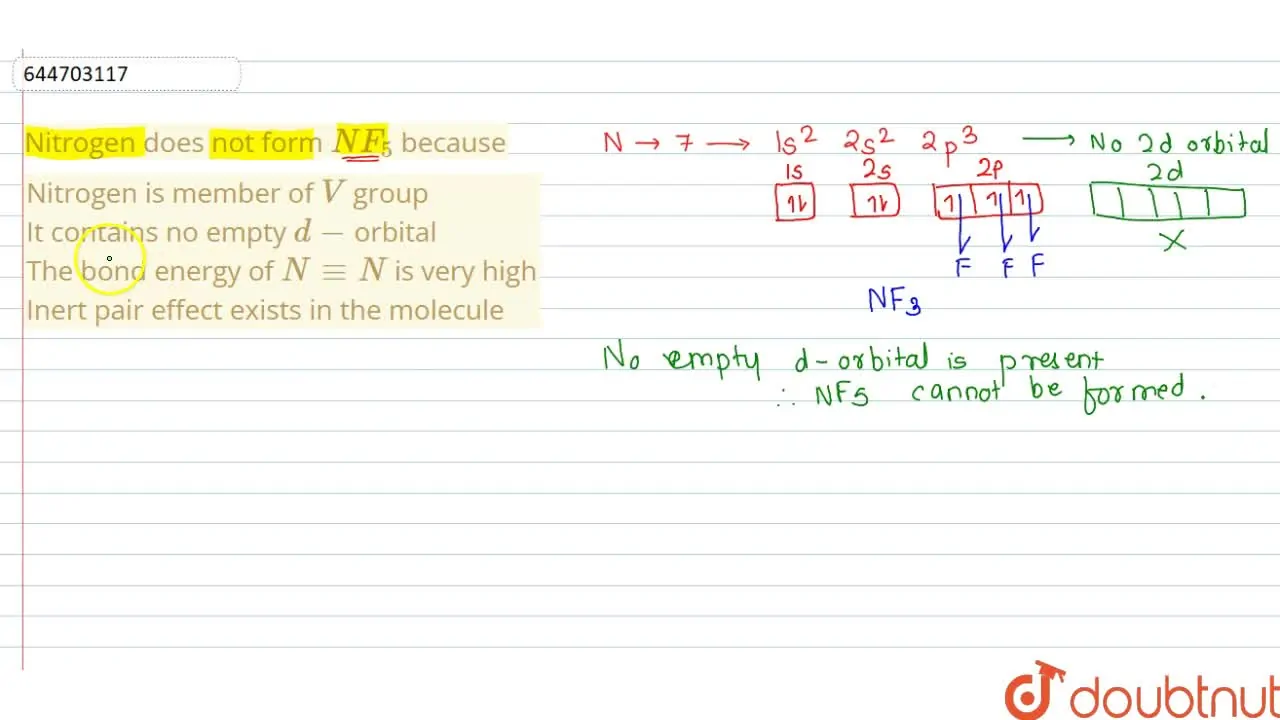 644703117
Nitrogen does not form NF₅ because
Nitrogen is member of V group
It contains no empty d – orbital
The bond energy of N ≡ N is very high
Inert pair effect exists in the molecule
N → 7 → 1s² 2s² 2p³ → No 2d orbital
1s 2s 2p 2d
1↓ 1↓ 1 1 1
F F F X
NF₃
No empty d-orbital is present
∴ NF5 cannot be formed.
doubtnut